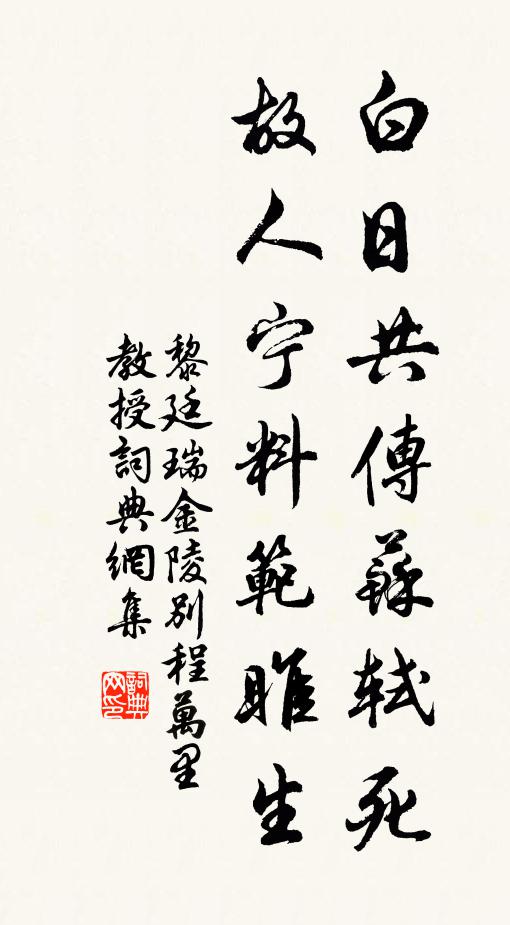 白日共傳蘇軾死
故人宁料範雎生
黎廷瑞金陵別程萬里
教授詞典網集
詞典网印